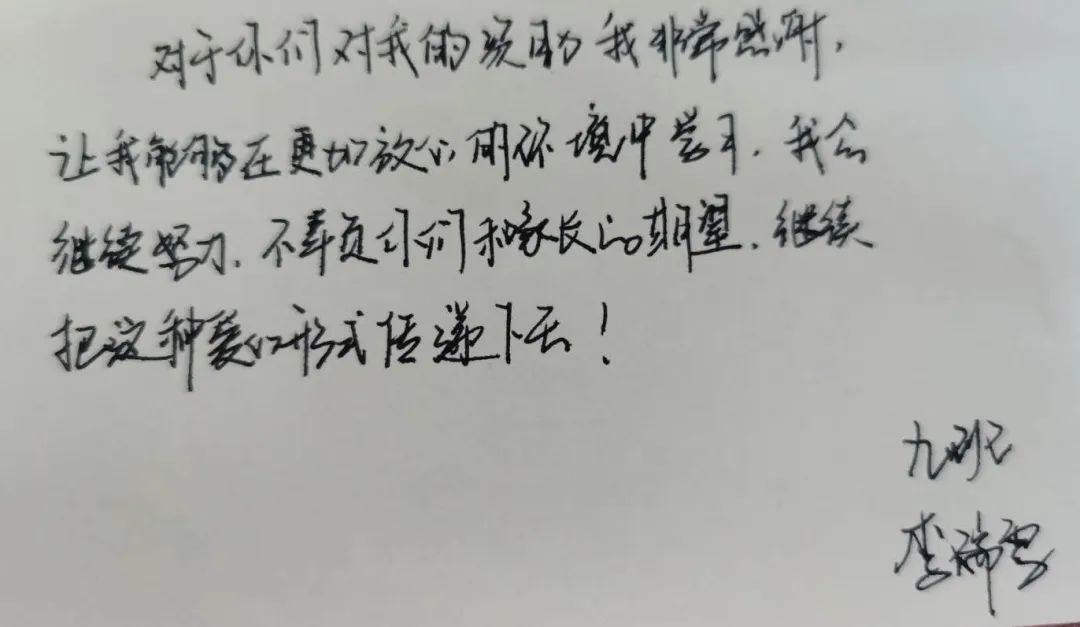 对于你们对我的资助我非常感谢，
让我能够在更加放心的环境中学习．我会
继续努力．不辜负你们和家长的期望．继续
把这种爱心形式传递下去！
九班
李瑞雪